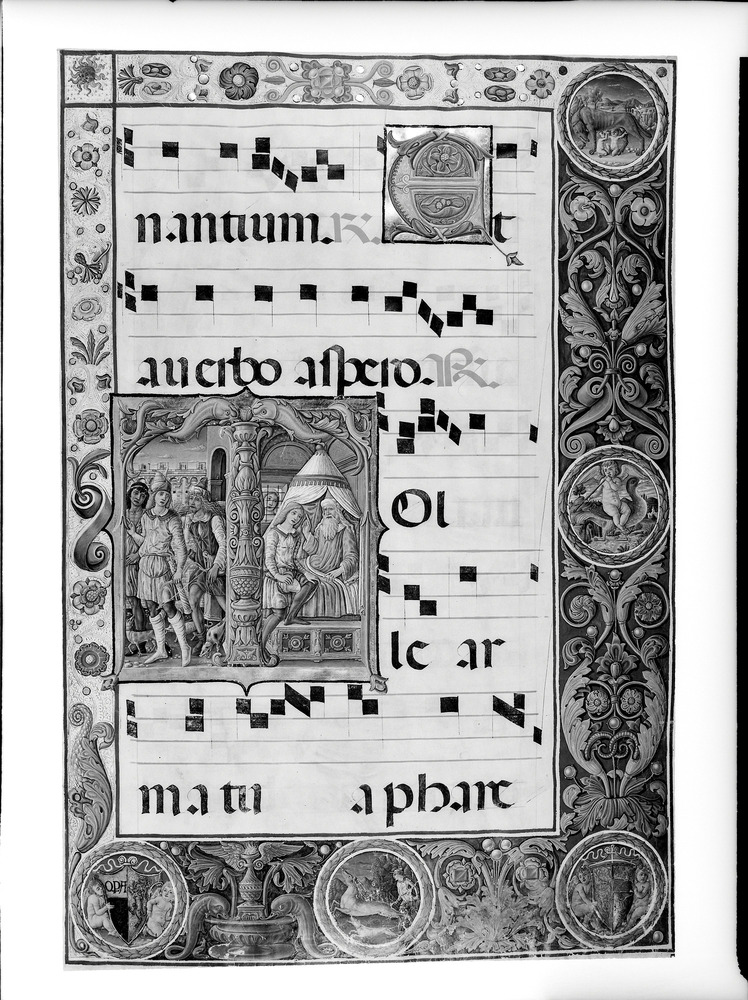 nantium. R. Et
a uerbo aspero. R.
TOl
le ar
ma tu a phare